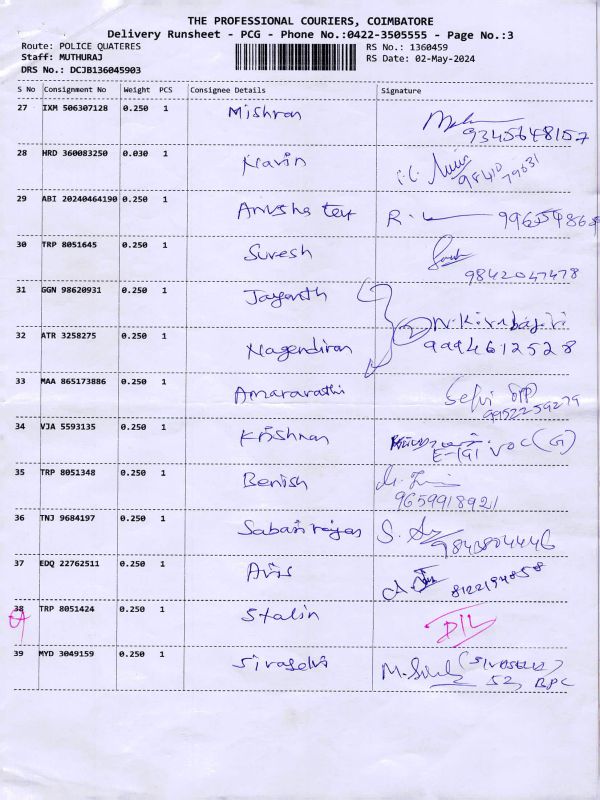 THE PROFESSIONAL COURIERS, COIMBATORE
Delivery Runsheet - PCG - Phone No.:0422-3505555 - Page No.:3
Route: POLICE QUATERES
RS No.: 1360459
Staff: MUTHURAJ
RS Date: 02-May-2024
DRS No.: DCJB136045903
S No Consignment No Weight PCS Consignee Details Signature
27 IXM 506307128 0.250 1 Mishran
9345648157
28 HRD 360083250 0.030 1 Navin
98410
79631
29 ABI 20240464190 0.250 1 Anusha tex R.
30 TRP 8051645 0.250 1 Suresh
9842047478
31 GGN 98620931 0.250 1 Jayanth
32 ATR 3258275 0.250 1 Nagendiran 2
9994612528
33 MAA 865173886 0.250 1 Amararathi Selvi
9952259279
34 VJA 5593135 0.250 1 Krishnan
E-191 VOC (G)
35 TRP 8051348 0.250 1 Benish
9659918921
36 TNJ 9684197 0.250 1 S.
9843804446
37 EDQ 22762511 0.250 1
38 TRP 8051424 0.250 1 Stalin D/L
39 MYD 3049159 0.250 1 Sivaselvi M.
52, BPC